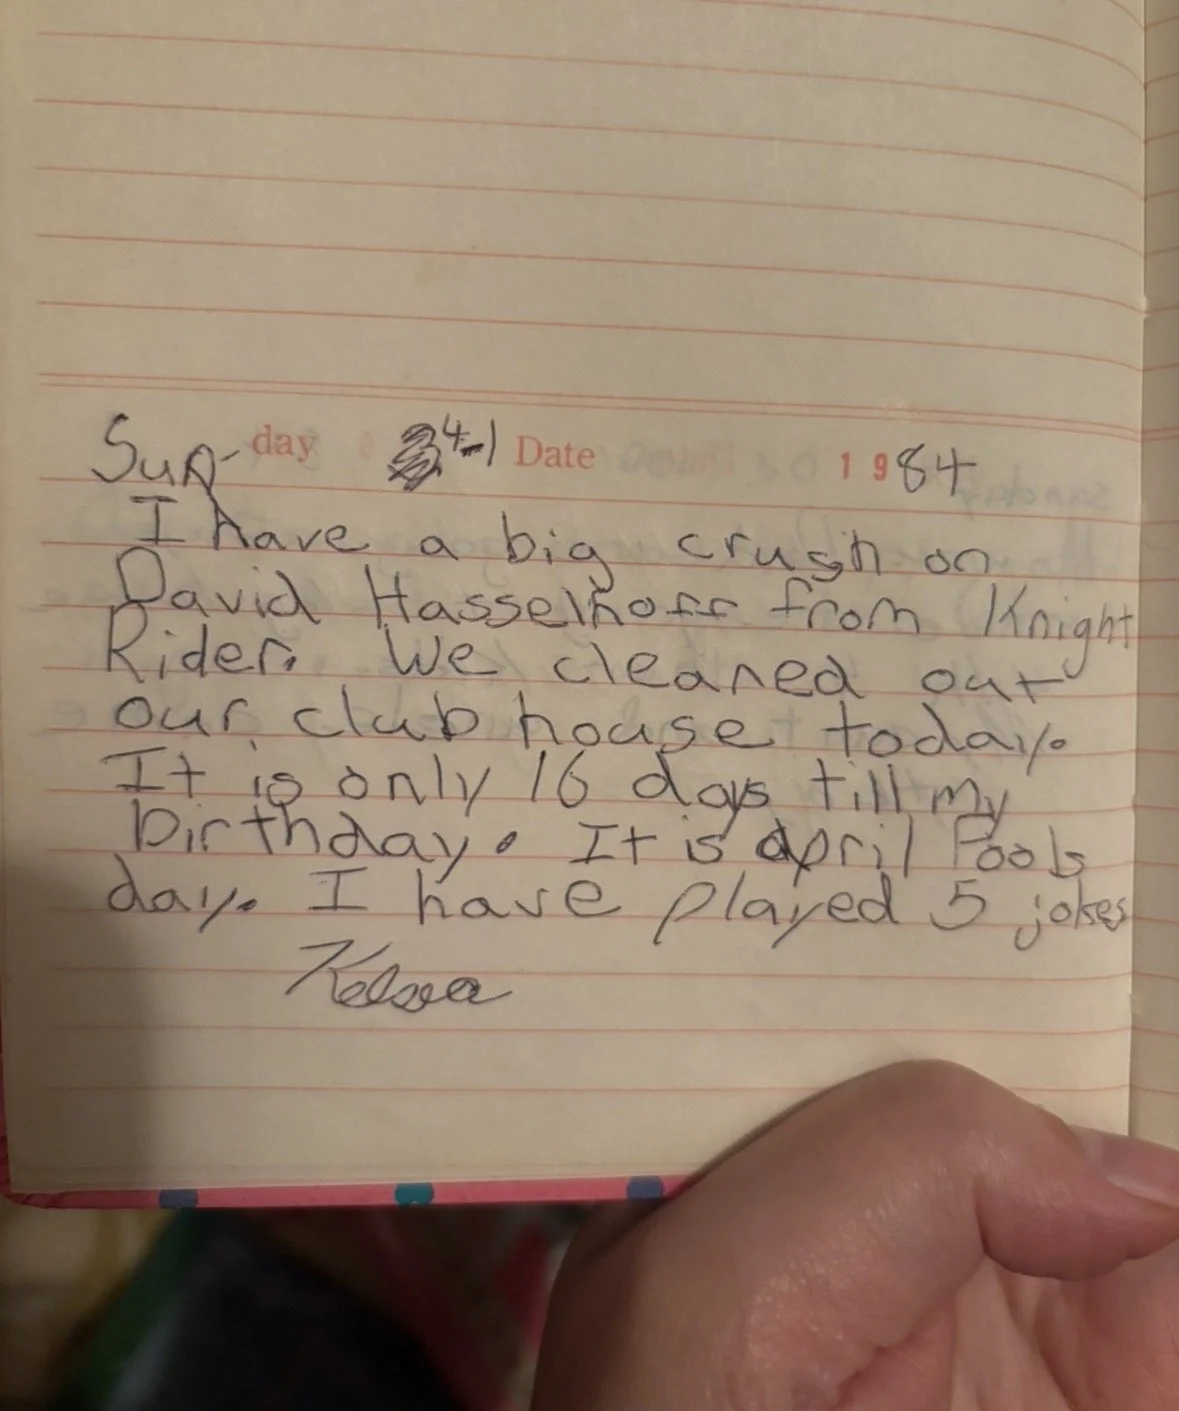 Sun-day 4-1 Date 1984
I have a big crush on
David Hasselhoff from Knight
Rider. We cleaned out
our club house today.
It is only 16 days till my
birthday. It is april Fools
day. I have played 5 jokes
Kelsea